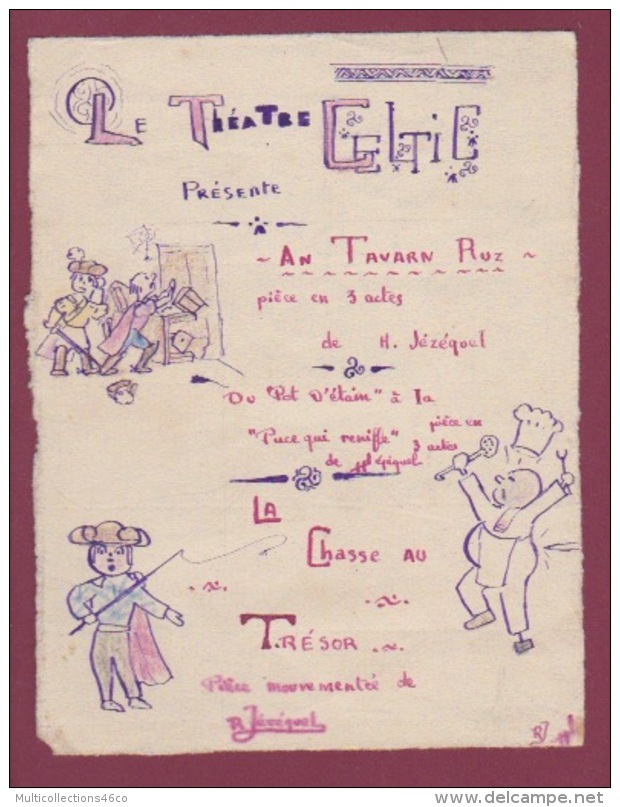 Le Théatre Celtic
Présente
An Tavarn Ruz
pièce en 3 actes
de H. Jézéquel
Du "Pot d'étain" à la
"Puce qui renifle" pièce en
3 actes
de
La
Chasse au
Trésor
Pièce mouvementée de
R Jézéquel
RJ
Multicollections46co